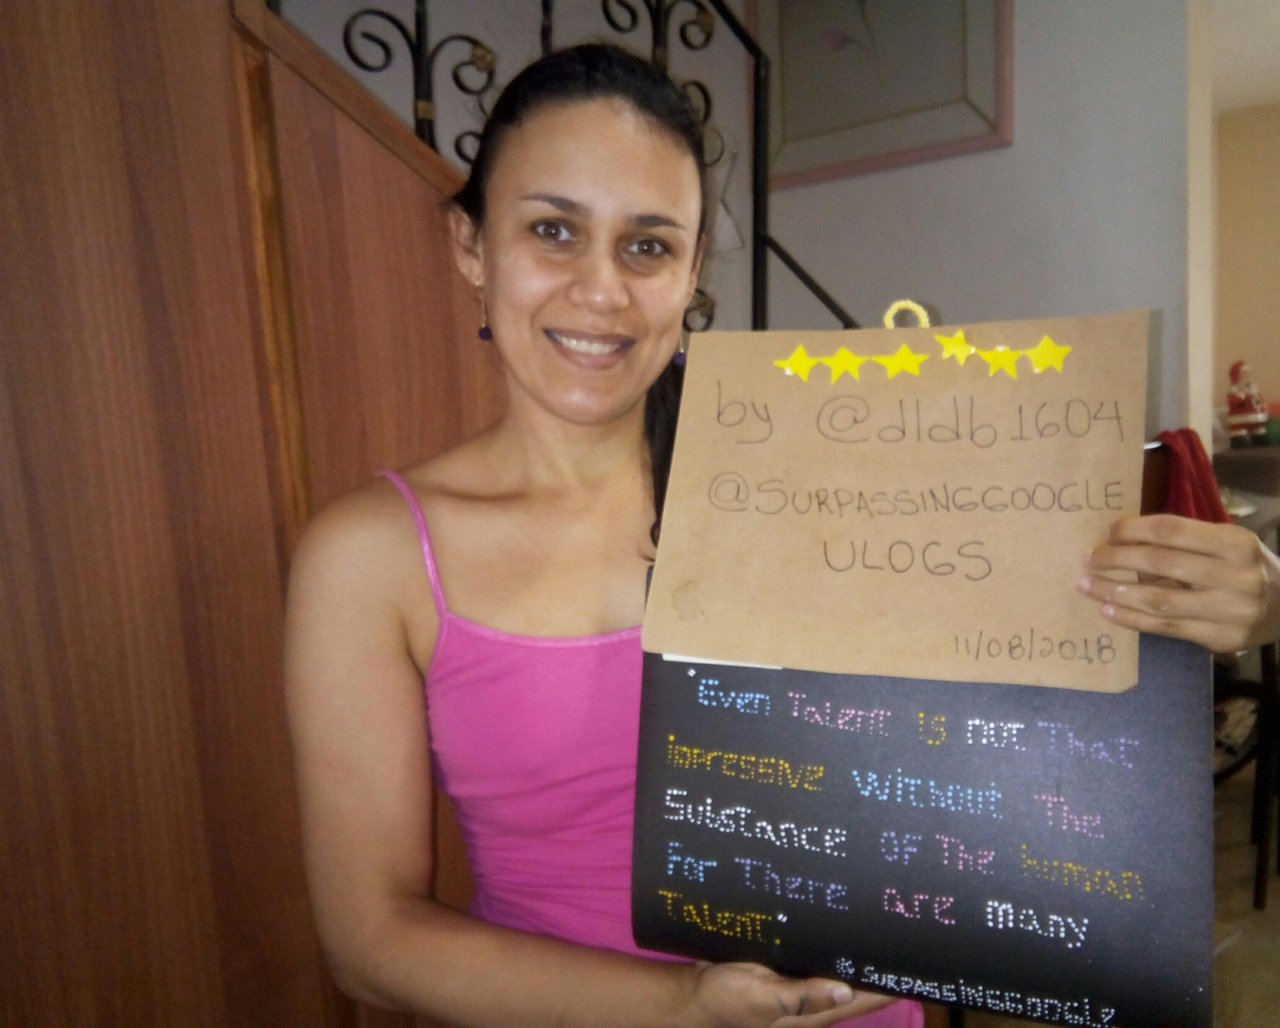 by @dldb1604
@SURPASSINGGOOGLE
ULOGS
11/08/2018
"Even Talent is not That
impressive without The
Substance of The human
For There are many
Talent."
@SURPASSINGGOOGLE